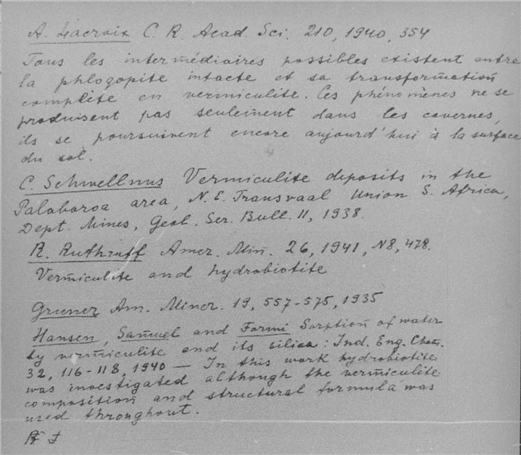 A. Lacroix C. R. Acad. Sci. 210, 1940, 354
Tous les intermédiaires possibles existent entre
la phlogopite intacte et sa transformation
complète en vermiculite. Ces phénomènes ne se
produisent pas seulement dans les cavernes,
ils se poursuivent encore aujourd'hui à la surface
du sol.
C. Schwellnus Vermiculite deposits in the
Palaboroa area, N.E. Transvaal Union S. Africa,
Dept. Mines, Geol. Ser. Bull. 11, 1938.
R. Ruthruff Amer. Min. 26, 1941, N8, 478.
Vermiculite and hydrobiotite
Gruner Am. Miner. 19, 557-575, 1935
Hansen, Samuel and Forni Sorption of water
by vermiculite and its silica: Ind. Eng. Chem.
32, 116-118, 1940 — In this work hydrobiotite
was investigated although the vermiculite
composition and structural formula was
used throughout.